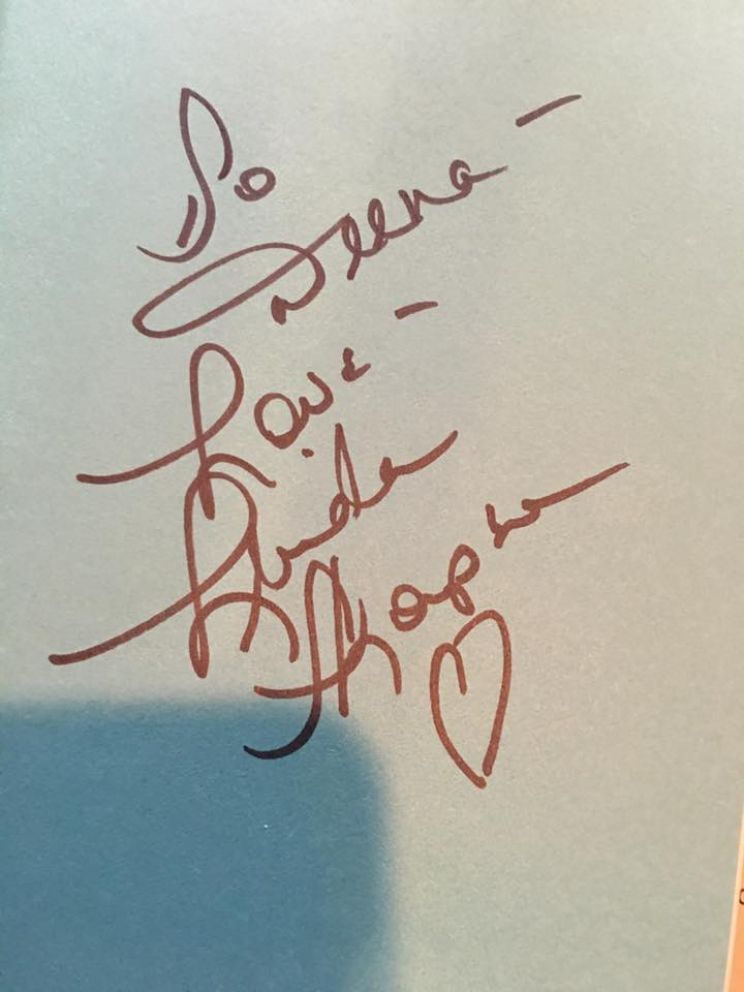 To
Deena -
Love -
Linda
Thorpe